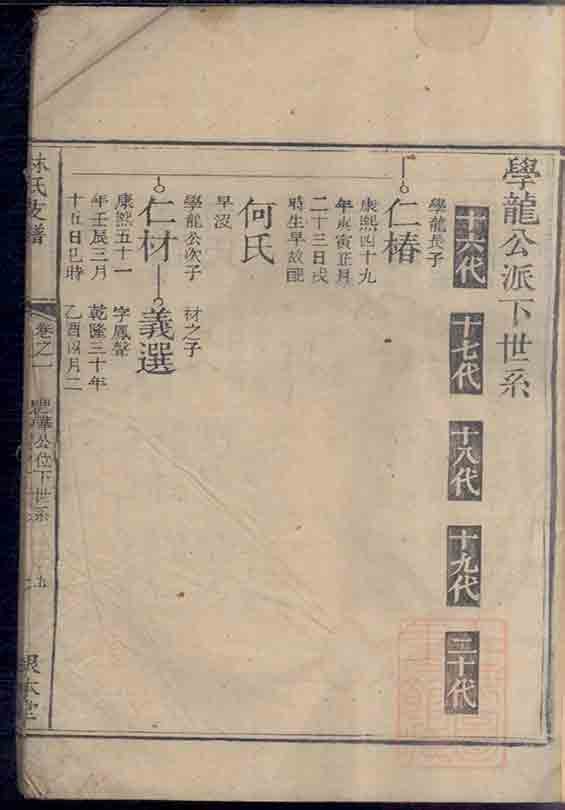 學龍公派下世系
十六代 十七代 十八代 十九代 二十代
學龍長子
仁椿
康熙四十九
年庚寅正月
二十三日戌
時生早故配
何氏
早沒
學龍公次子 材之子
仁材 義選
康熙五十一 字鳳聲
年壬辰三月 乾隆三十年
十五日巳時 乙酉四月二
林氏支譜 卷之一 公位下世系